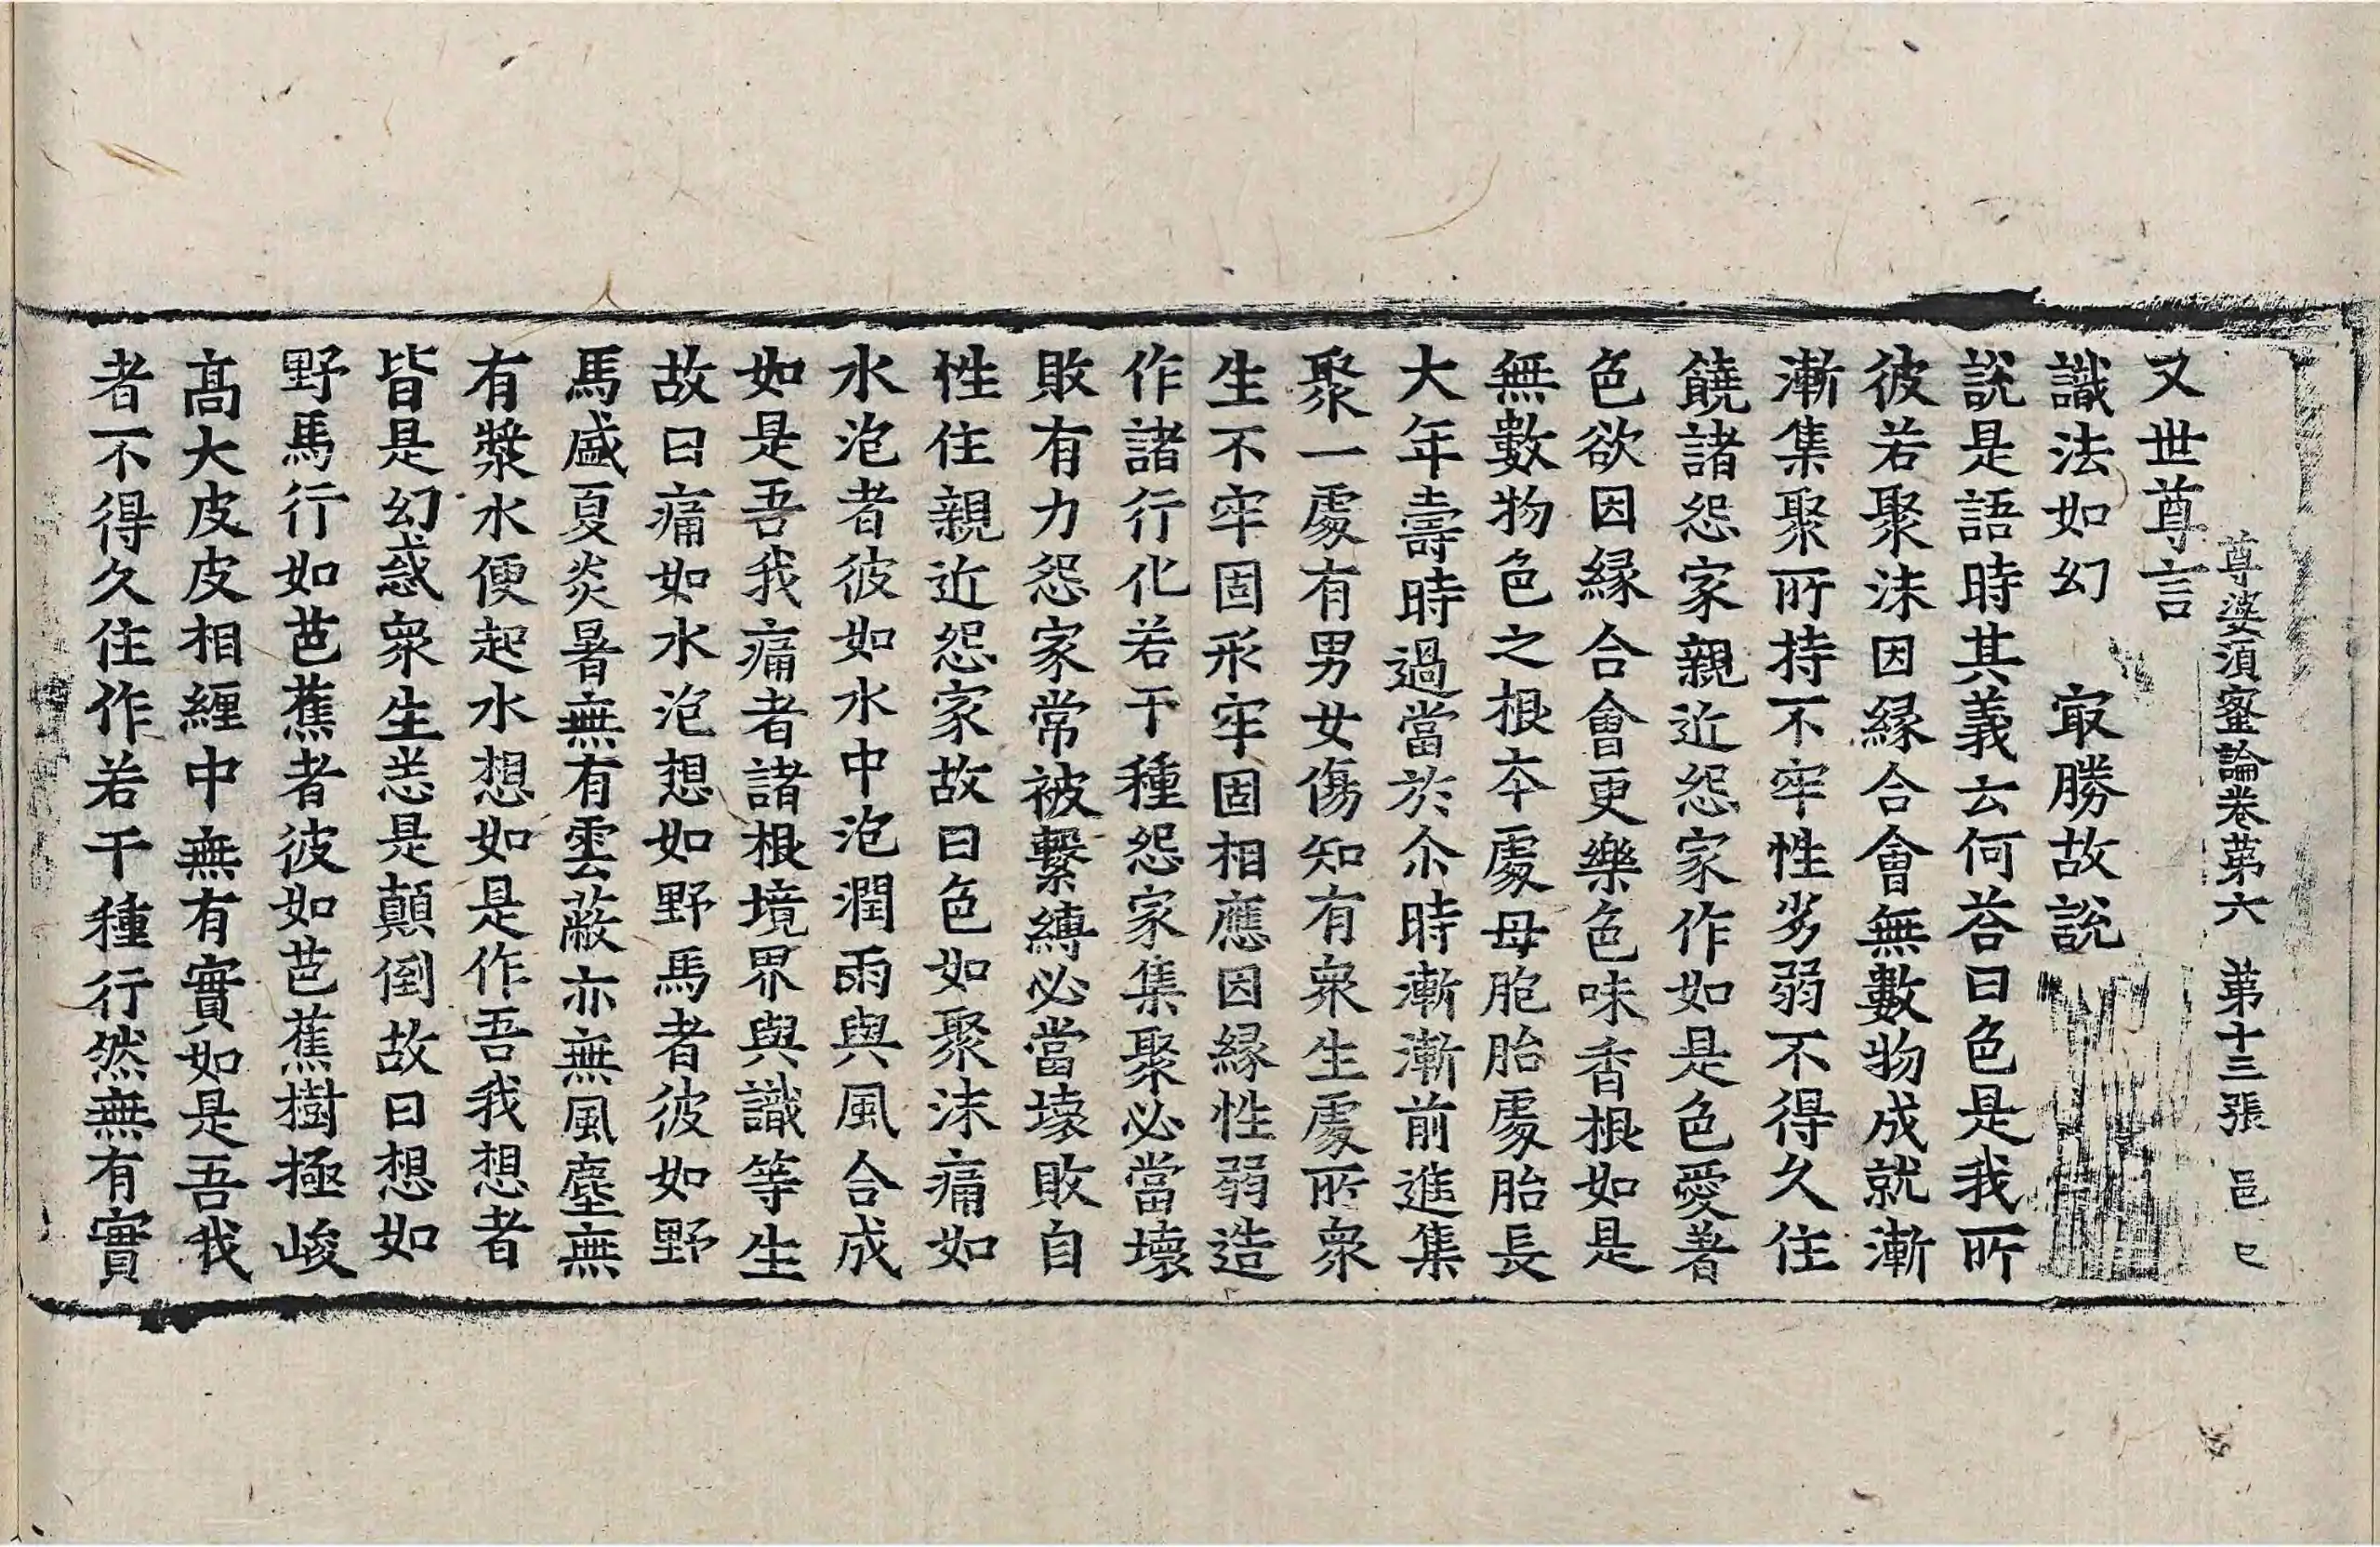 尊婆須蜜論卷第六 第十三張 邑 巳
又世尊言
識法如幻 㝡勝故說
說是語時其義云何荅曰色是我所
彼若聚沫因緣合會無數物成就漸
漸集聚所持不牢性劣弱不得久住
饒諸怨家親近怨家作如是色愛著
色欲因緣合會更樂色味香根如是
無數物色之根本處母胞胎處胎長
大年壽時過當於尒時漸漸前進集
聚一處有男女傷知有衆生處所衆
生不牢固形牢固相應因緣性弱造
作諸行化若干種怨家集聚必當壞
敗有力怨家常被繫縛必當壞敗自
性住親近怨家故曰色如聚沫痛如
水泡者彼如水中泡潤雨與風合成
如是吾我痛者諸根境界與識等生
故曰痛如水泡想如野馬者彼如野
馬盛夏炎暑無有雲蔽亦無風塵無
有漿水便起水想如是作吾我想者
皆是幻惑衆生恙是顛倒故曰想如
野馬行如芭蕉者彼如芭蕉樹極峻
髙大皮皮相纏中無有實如是吾我
者不得久住作若干種行然無有實